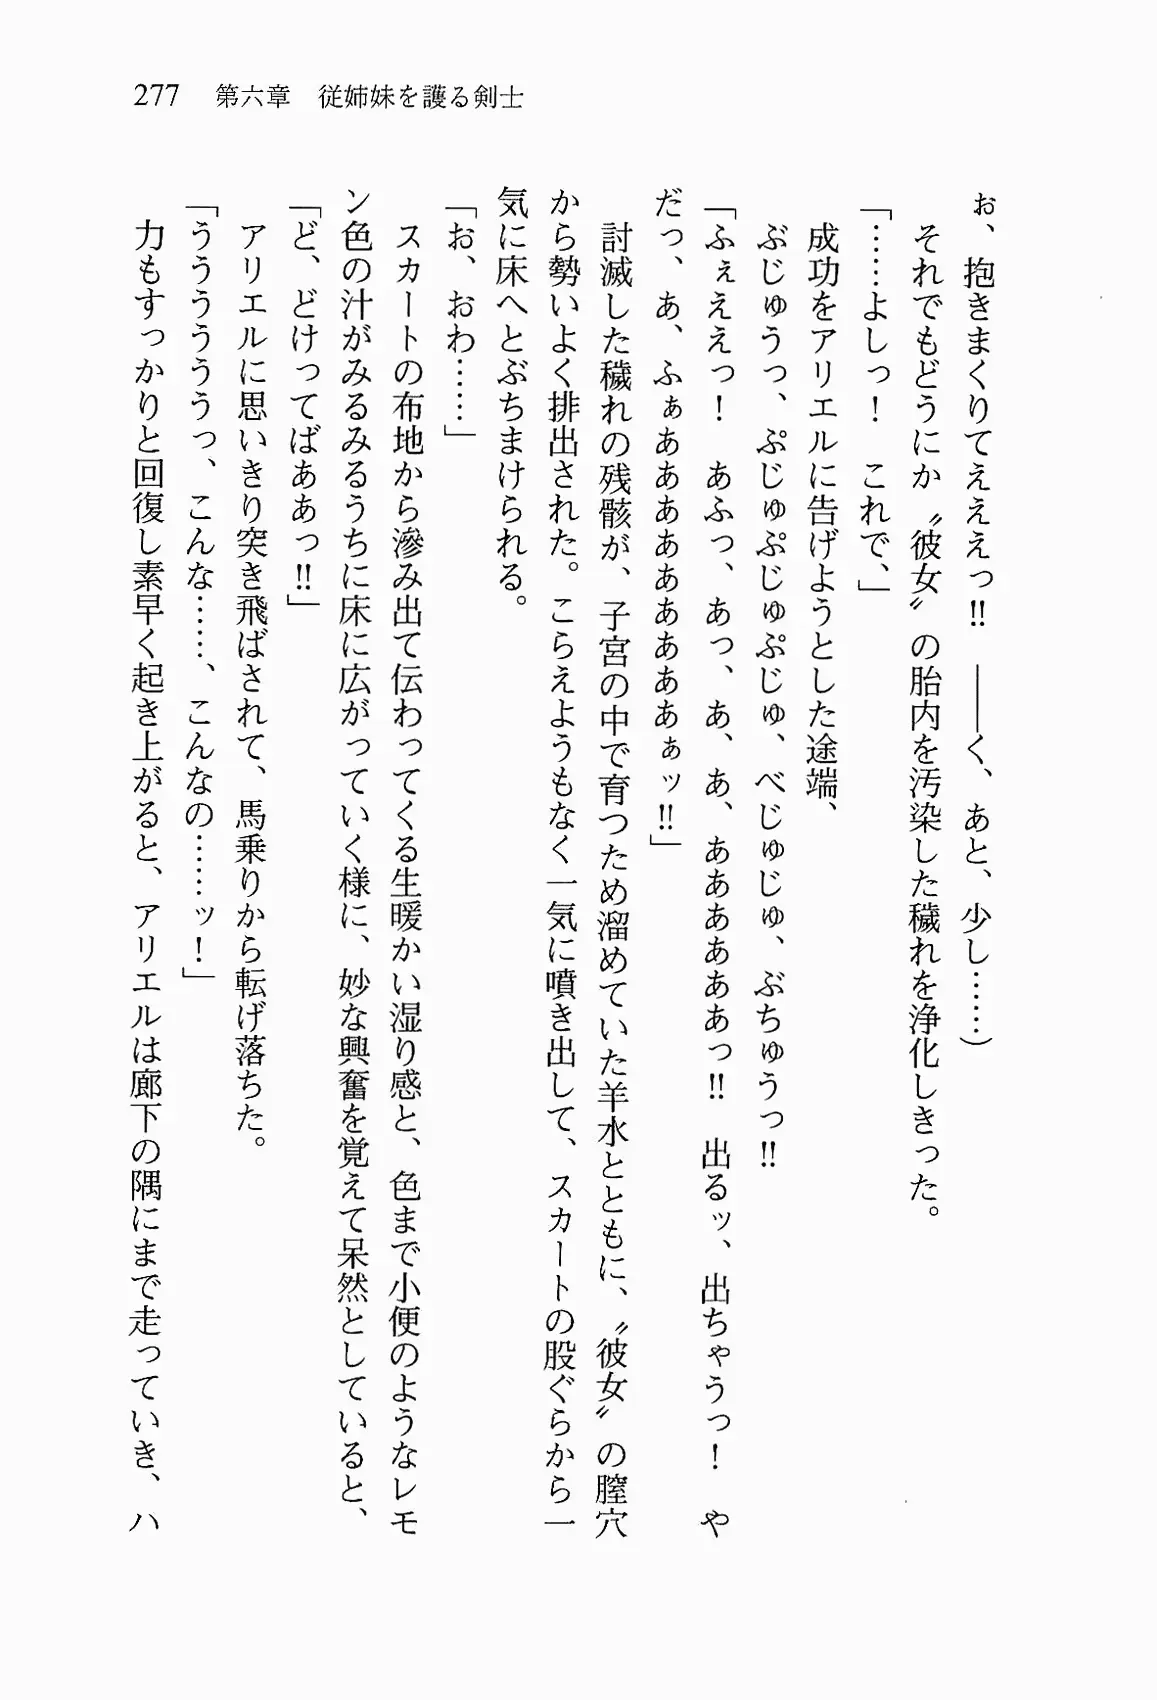 277　第六章　従姉妹を護る剣士
ぉ、抱きまくりてえええっ‼　――く、あと、少し……）
　それでもどうにか〝彼女〟の胎内を汚染した穢れを浄化しきった。
「……よしっ！　これで、」
　成功をアリエルに告げようとした途端、
　ぶじゅうっ、ぷじゅぷじゅぷじゅ、べじゅじゅ、ぶちゅうっ‼
「ふぇええっ！　あふっ、あっ、あ、あ、ああああああっ‼　出るッ、出ちゃうっ！　や
だっ、あ、ふぁああああああああぁッ‼」
　討滅した穢れの残骸が、子宮の中で育つため溜めていた羊水とともに、〝彼女〟の膣穴
から勢いよく排出された。こらえようもなく一気に噴き出して、スカートの股ぐらから一
気に床へとぶちまけられる。
「お、おわ……」
　スカートの布地から滲み出て伝わってくる生暖かい湿り感と、色まで小便のようなレモ
ン色の汁がみるみるうちに床に広がっていく様に、妙な興奮を覚えて呆然としていると、
「ど、どけってばああっ‼」
　アリエルに思いきり突き飛ばされて、馬乗りから転げ落ちた。
「うううううっ、こんな……、こんなの……ッ！」
　力もすっかりと回復し素早く起き上がると、アリエルは廊下の隅にまで走っていき、ハ